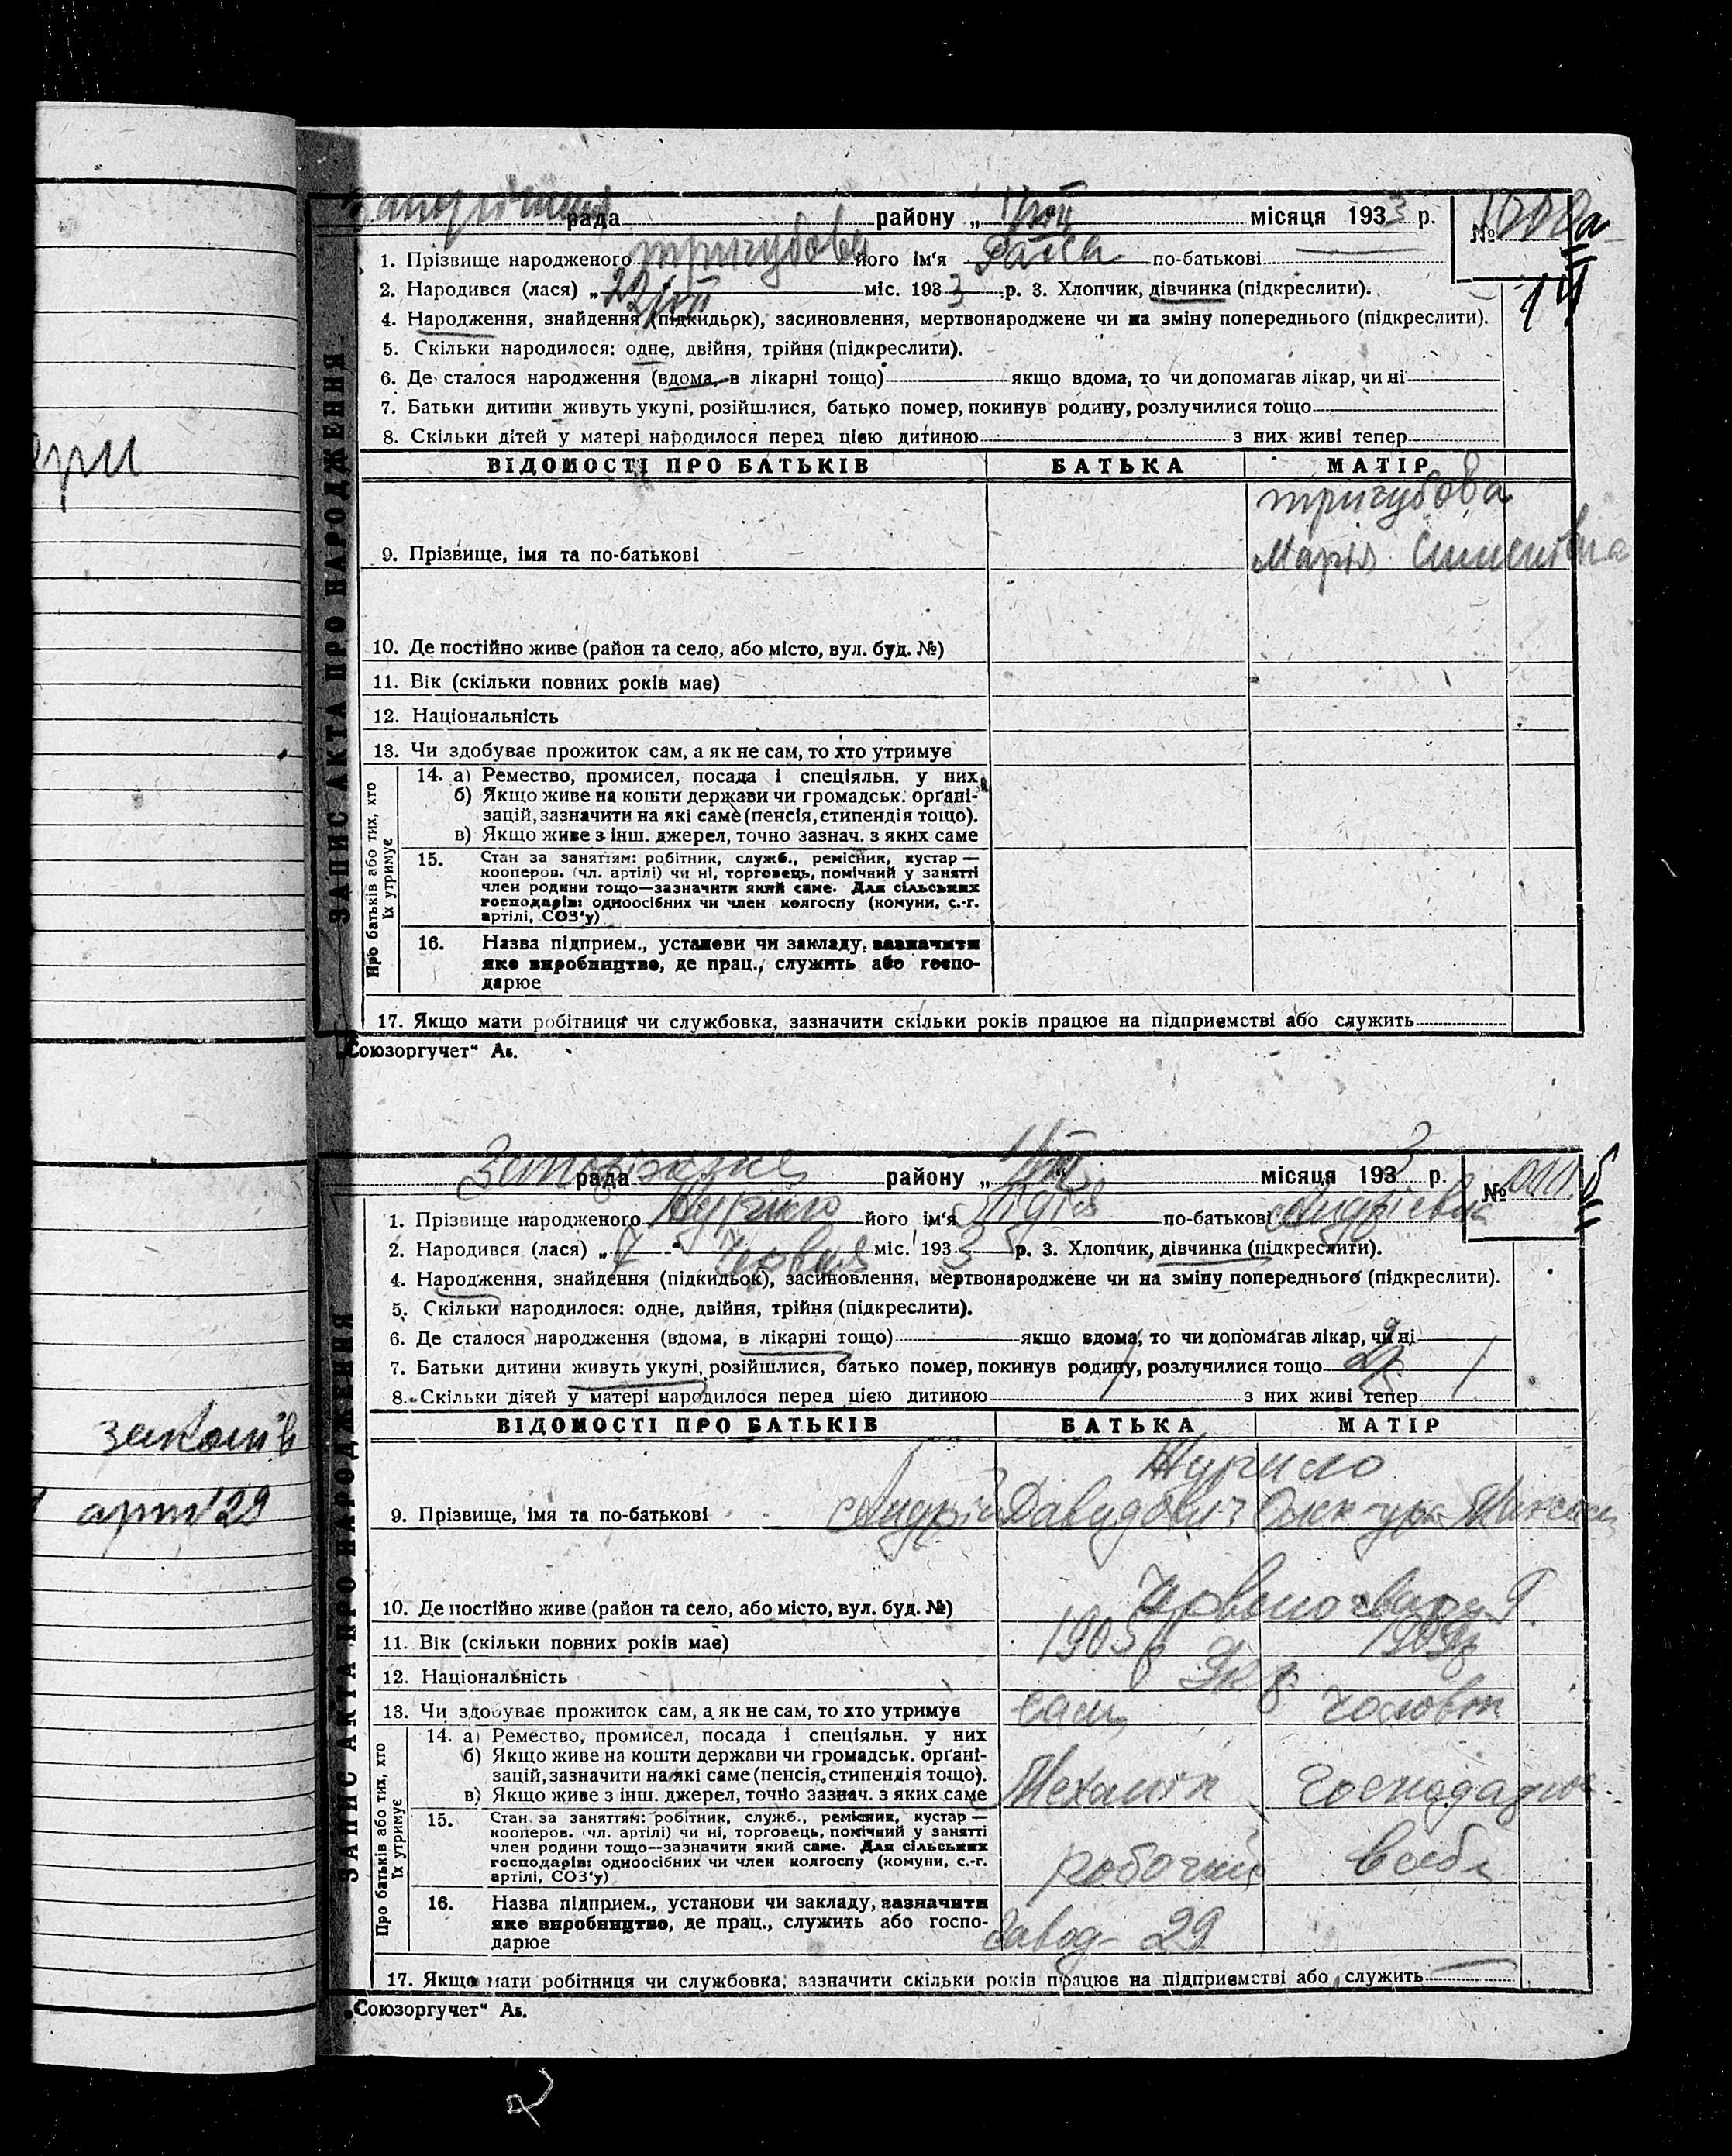 ери
законів
арт 29
ЗАПИС АКТА ПРО НАРОДЖЕННЯ
рада району „ місяця 1933 р. №
1. Прізвище народженого тригубова його ім'я Раїса по-батькові
2. Народився (лася) „22/VII міс. 1933 р. 3. Хлопчик, дівчинка (підкреслити).
4. Народження, знайдення (підкидьок), засиновлення, мертвонароджене чи на зміну попереднього (підкреслити).
5. Скільки народилося: одне, двійня, трійня (підкреслити).
6. Де сталося народження (вдома, в лікарні тощо) якщо вдома, то чи допомагав лікар, чи ні
7. Батьки дитини живуть укупі, розійшлися, батько помер, покинув родину, розлучилися тощо
8. Скільки дітей у матері народилося перед цією дитиною з них живі тепер
ВІДОМОСТІ ПРО БАТЬКІВ БАТЬКА МАТІР
тригубова
9. Прізвище, імя та по-батькові Марія
10. Де постійно живе (район та село, або місто, вул. буд. №)
11. Вік (скільки повних років має)
12. Національність
13. Чи здобуває прожиток сам, а як не сам, то хто утримує
Про батьків або тих, хто їх утримує
14. а) Ремество, промисел, посада і спеціяльн. у них
б) Якщо живе на кошти держави чи громадськ. органі-
зацій, зазначити на які саме (пенсія, стипендія тощо).
в) Якщо живе з інш. джерел, точно зазнач. з яких саме
15. Стан за заняттям: робітник, служб., ремісник, кустар —
кооперов. (чл. артілі) чи ні, торговець, помічний у занятті
член родини тощо—зазначити який саме. Для сільських
господарів: одноосібних чи член колгоспу (комуни, с.-г.
артілі, СОЗ'у)
16. Назва підприєм., установи чи закладу, зазначити
яке виробництво, де прац., служить або госпо-
дарює
17. Якщо мати робітниця чи службовка, зазначити скільки років працює на підприємстві або служить
„Союзоргучет“ Аб.
ЗАПИС АКТА ПРО НАРОДЖЕННЯ
рада району „ місяця 1933 р. №
1. Прізвище народженого його ім'я Лідія по-батькові Андріевна
2. Народився (лася) „7“ Червня міс. 1933 р. 3. Хлопчик, дівчинка (підкреслити).
4. Народження, знайдення (підкидьок), засиновлення, мертвонароджене чи на зміну попереднього (підкреслити).
5. Скільки народилося: одне, двійня, трійня (підкреслити).
6. Де сталося народження (вдома, в лікарні тощо) якщо вдома, то чи допомагав лікар, чи ні
7. Батьки дитини живуть укупі, розійшлися, батько помер, покинув родину, розлучилися тощо
8. Скільки дітей у матері народилося перед цією дитиною з них живі тепер
ВІДОМОСТІ ПРО БАТЬКІВ БАТЬКА МАТІР
9. Прізвище, імя та по-батькові Андрій Давидович
10. Де постійно живе (район та село, або місто, вул. буд. №)
11. Вік (скільки повних років має) 1905р
12. Національність Укр
13. Чи здобуває прожиток сам, а як не сам, то хто утримує сам чоловік
Про батьків або тих, хто їх утримує
14. а) Ремество, промисел, посада і спеціяльн. у них
б) Якщо живе на кошти держави чи громадськ. органі-
зацій, зазначити на які саме (пенсія, стипендія тощо).
в) Якщо живе з інш. джерел, точно зазнач. з яких саме Механік
15. Стан за заняттям: робітник, служб., ремісник, кустар —
кооперов. (чл. артілі) чи ні, торговець, помічний у занятті
член родини тощо—зазначити який саме. Для сільських
господарів: одноосібних чи член колгоспу (комуни, с.-г.
артілі, СОЗ'у) робочий
16. Назва підприєм., установи чи закладу, зазначити
яке виробництво, де прац., служить або госпо-
дарює завод 29
17. Якщо мати робітниця чи службовка, зазначити скільки років працює на підприємстві або служить
„Союзоргучет“ Аб.